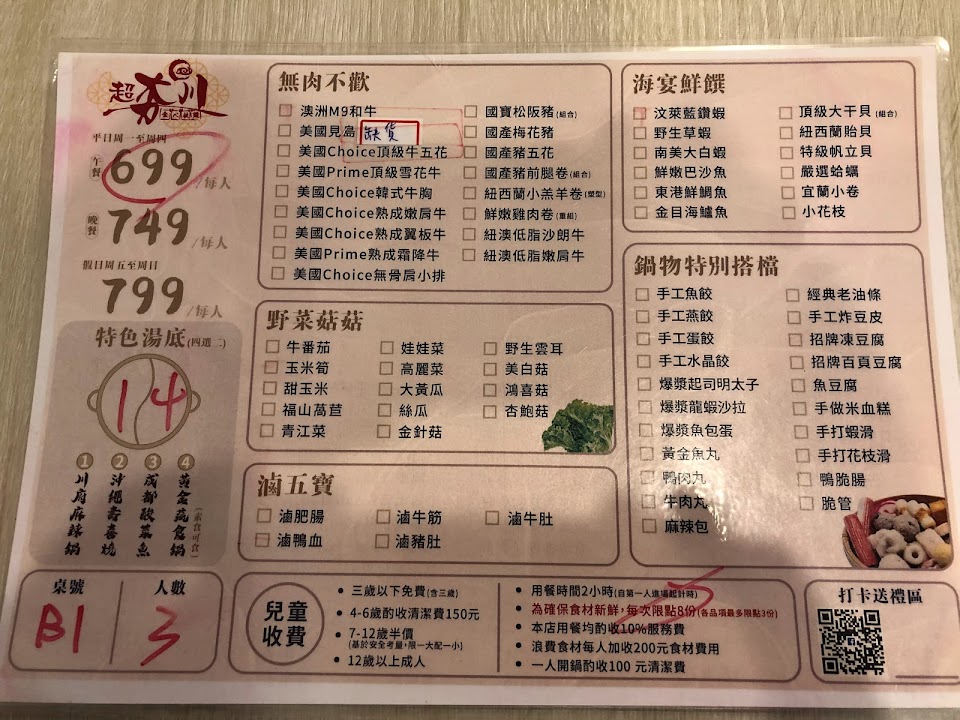 超夯川
平日周一至周四
午餐 699/每人
晚餐 749/每人
假日周五至周日
799/每人
特色湯底(四選二)
14
1 川府麻辣鍋
2 沖繩壽喜燒
3 成都酸菜魚
4 黃金蔬食鍋(素食可食)
無肉不歡
澳洲M9和牛
美國見島
缺貨
美國Choice頂級牛五花
美國Prime頂級雪花牛
美國Choice韓式牛胸
美國Choice熟成嫩肩牛
美國Choice熟成翼板牛
美國Prime熟成霜降牛
美國Choice無骨肩小排
國寶松阪豬(組合)
國產梅花豬
國產豬五花
國產豬前腿卷(組合)
紐西蘭小羔羊卷(塑型)
鮮嫩雞肉卷(重組)
紐澳低脂沙朗牛
紐澳低脂嫩肩牛
海宴鮮饌
汶萊藍鑽蝦
野生草蝦
南美大白蝦
鮮嫩巴沙魚
東港鮮鯛魚
金目海鱸魚
頂級大干貝(組合)
紐西蘭貽貝
特級帆立貝
嚴選蛤蠣
宜蘭小卷
小花枝
野菜菇菇
牛番茄
玉米筍
甜玉米
福山萵苣
青江菜
娃娃菜
高麗菜
大黃瓜
絲瓜
金針菇
野生雲耳
美白菇
鴻喜菇
杏鮑菇
鍋物特別搭檔
手工魚餃
手工燕餃
手工蛋餃
手工水晶餃
爆漿起司明太子
爆漿龍蝦沙拉
爆漿魚包蛋
黃金魚丸
鴨肉丸
牛肉丸
麻辣包
經典老油條
手工炸豆皮
招牌凍豆腐
招牌百頁豆腐
魚豆腐
手做米血糕
手打蝦滑
手打花枝滑
鴨脆腸
脆管
滷五寶
滷肥腸
滷鴨血
滷牛筋
滷豬肚
滷牛肚
桌號
B1
人數
3
兒童收費
• 三歲以下免費(含三歲)
• 4-6歲酌收清潔費150元
• 7-12歲半價
(基於安全考量,限一大配一小)
• 12歲以上成人
• 用餐時間2小時(自第一人進場起計時)
• 為確保食材新鮮,每次限點8份(各品項最多限點3份)
• 本店用餐均酌收10%服務費
• 浪費食材每人加收200元食材費用
• 一人開鍋酌收100 元清潔費
打卡送禮區